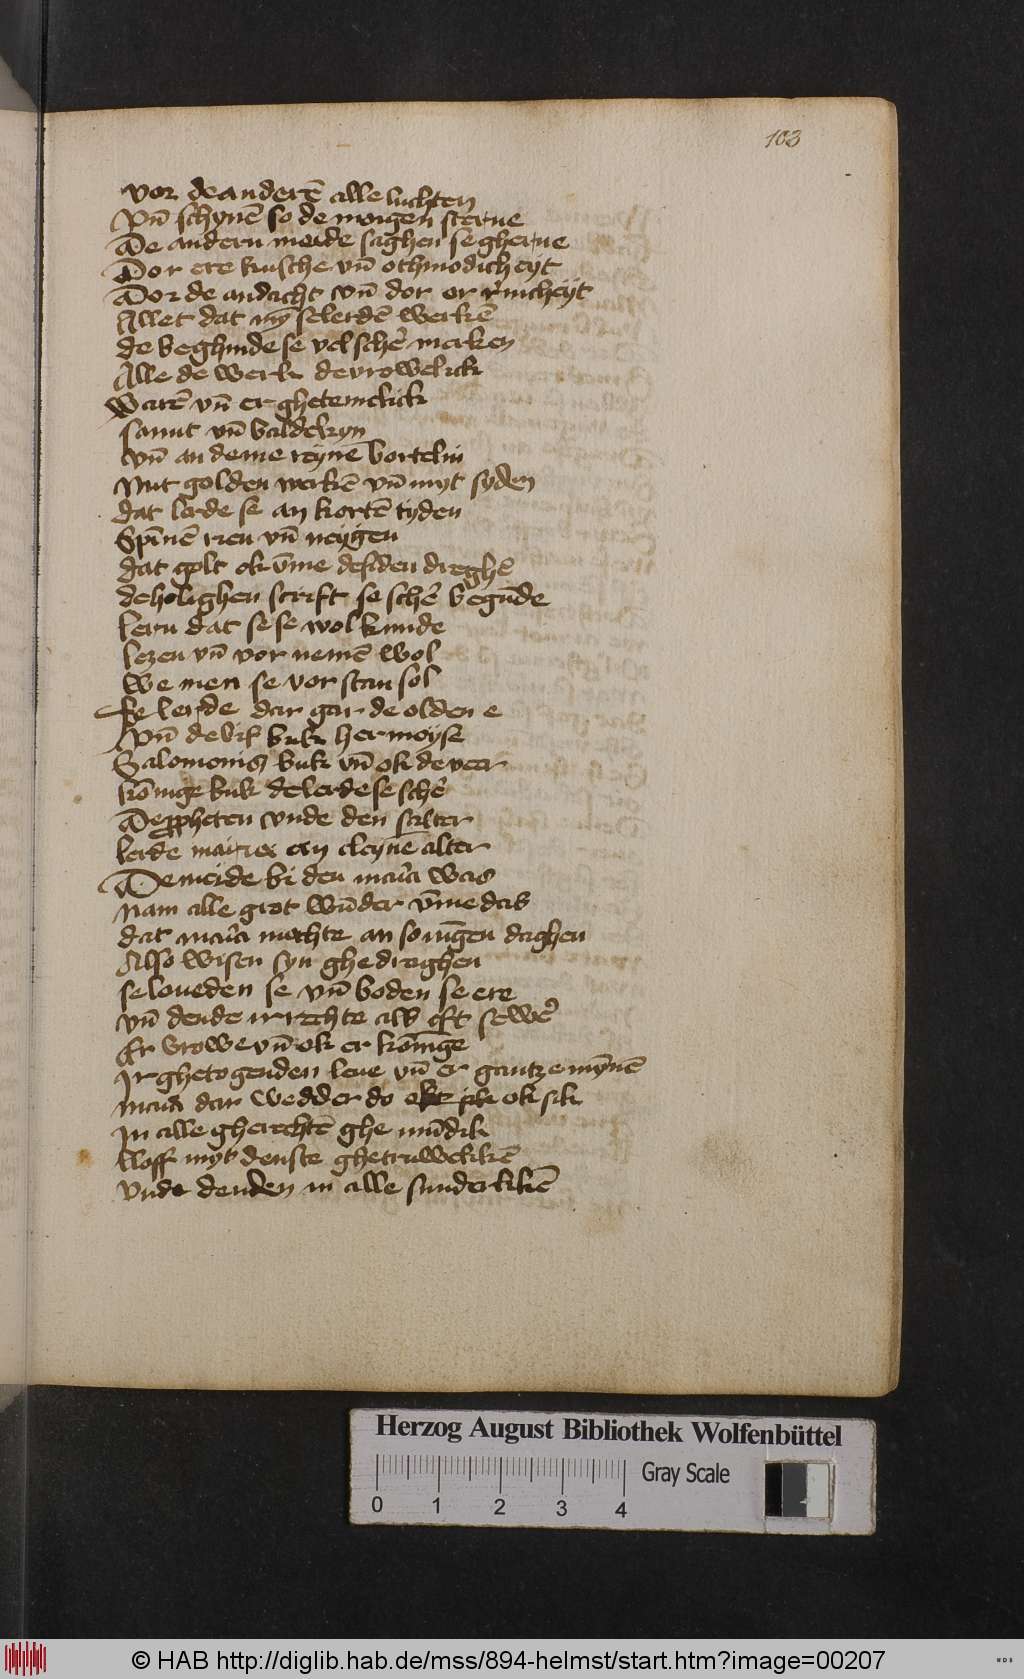 103
vor de anderē alle luchten
Vn̄ schynē so de morgen sterne
De andern meide saghen se gherne
Dor ere kusche vn̄ othmodicheyt
Dor de andacht vn̄ dor er r̄nicheyt
Allet dat mȳ se lerdē werkē
de beghinde se vel schēr merken
Alle de werk de vrowelick
Warē vn̄ er ghetemelick
samit vn̄ baldekyn
vn̄ an deme reynē bortelin
Mit golden werkē vn̄ myt syden
dat lerde se an kortē tyden
Spīnē vn̄ neygen
dat golt ok vm̄e de siden dreghē
de holighen scrift se schēr begūde
lern dat se se wol kunde
lezen vn̄ vor nemē wol
we men se vor stan sol
Se lerde dar gar de olden e
Vn̄ de vif buk her moyse
Salomonis buk vn̄ ok de veer
kōnige buk de lerde se schēr
De ppheten vnde den salter
lerde maria an cleynē alter
De meide bi den maria was
Nam alle grot wūder vm̄e das
dat maria mochte an so iūgen daghen
Also wisen syn ghedraghen
se loueden se vn̄ boden se ere
vn̄ dende ir rechte als eft se wēr
Er vrowe vn̄ ok er kōnīge
Ir ghetogenden leue vn̄ er gantze mȳnē
maria dar wedder do ok sik
In alle gherechtē ghe mūdik
kloff myt denste ghetruwelikē
Vnde denden in alle sunderlikē
Herzog August Bibliothek Wolfenbüttel
0 1 2 3 4
Gray Scale
© HAB http://diglib.hab.de/mss/894-helmst/start.htm?image=00207